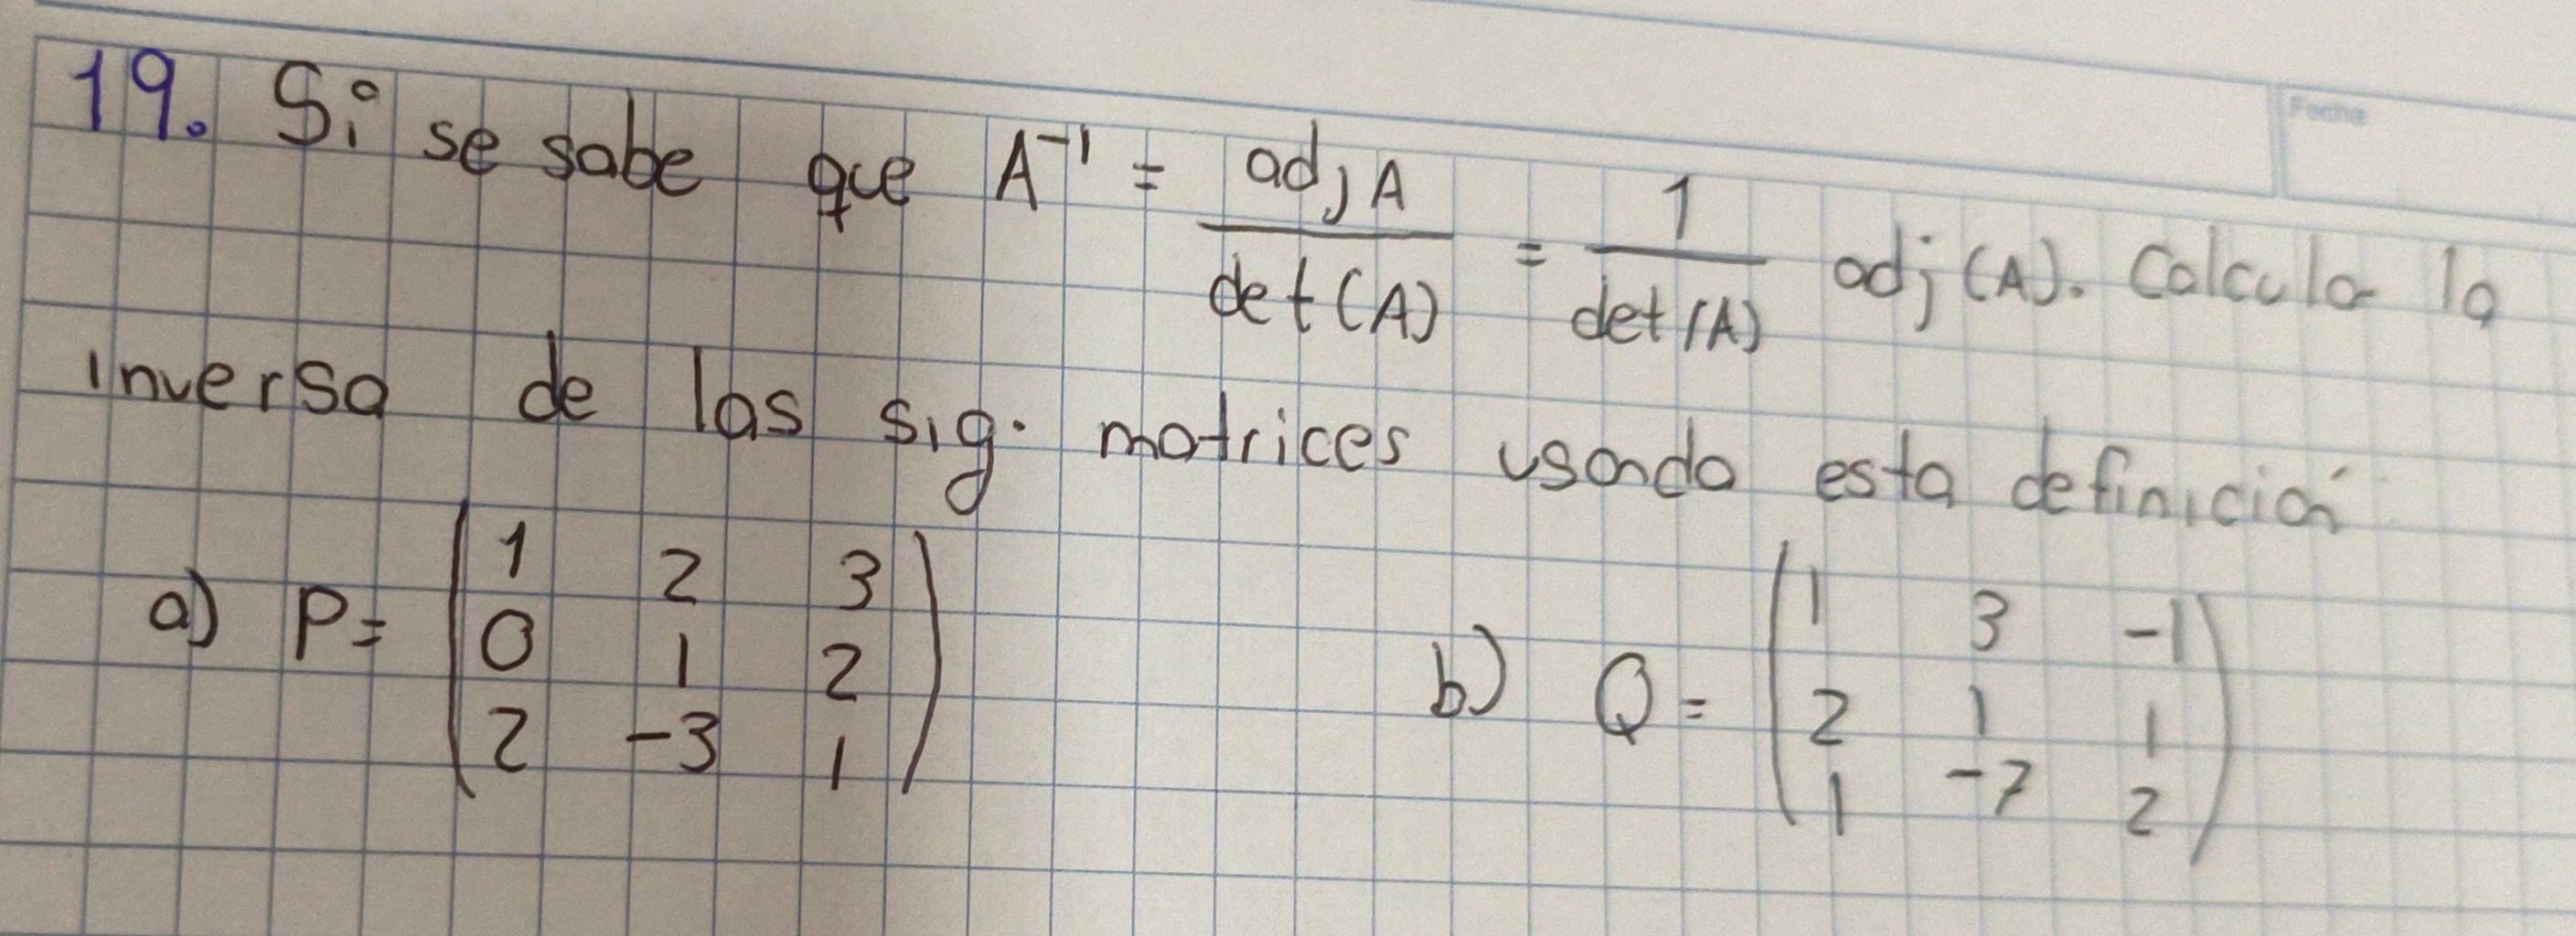 Fecha
19. Si se sabe que A⁻¹ = adj A / det(A) = 1 / det(A) adj(A). Calcula la
inversa de las sig. matrices usando esta definición
a) P = (1 2 3
0 1 2
2 -3 1)
b) Q = (1 3 -1
2 1 1
1 -7 2)